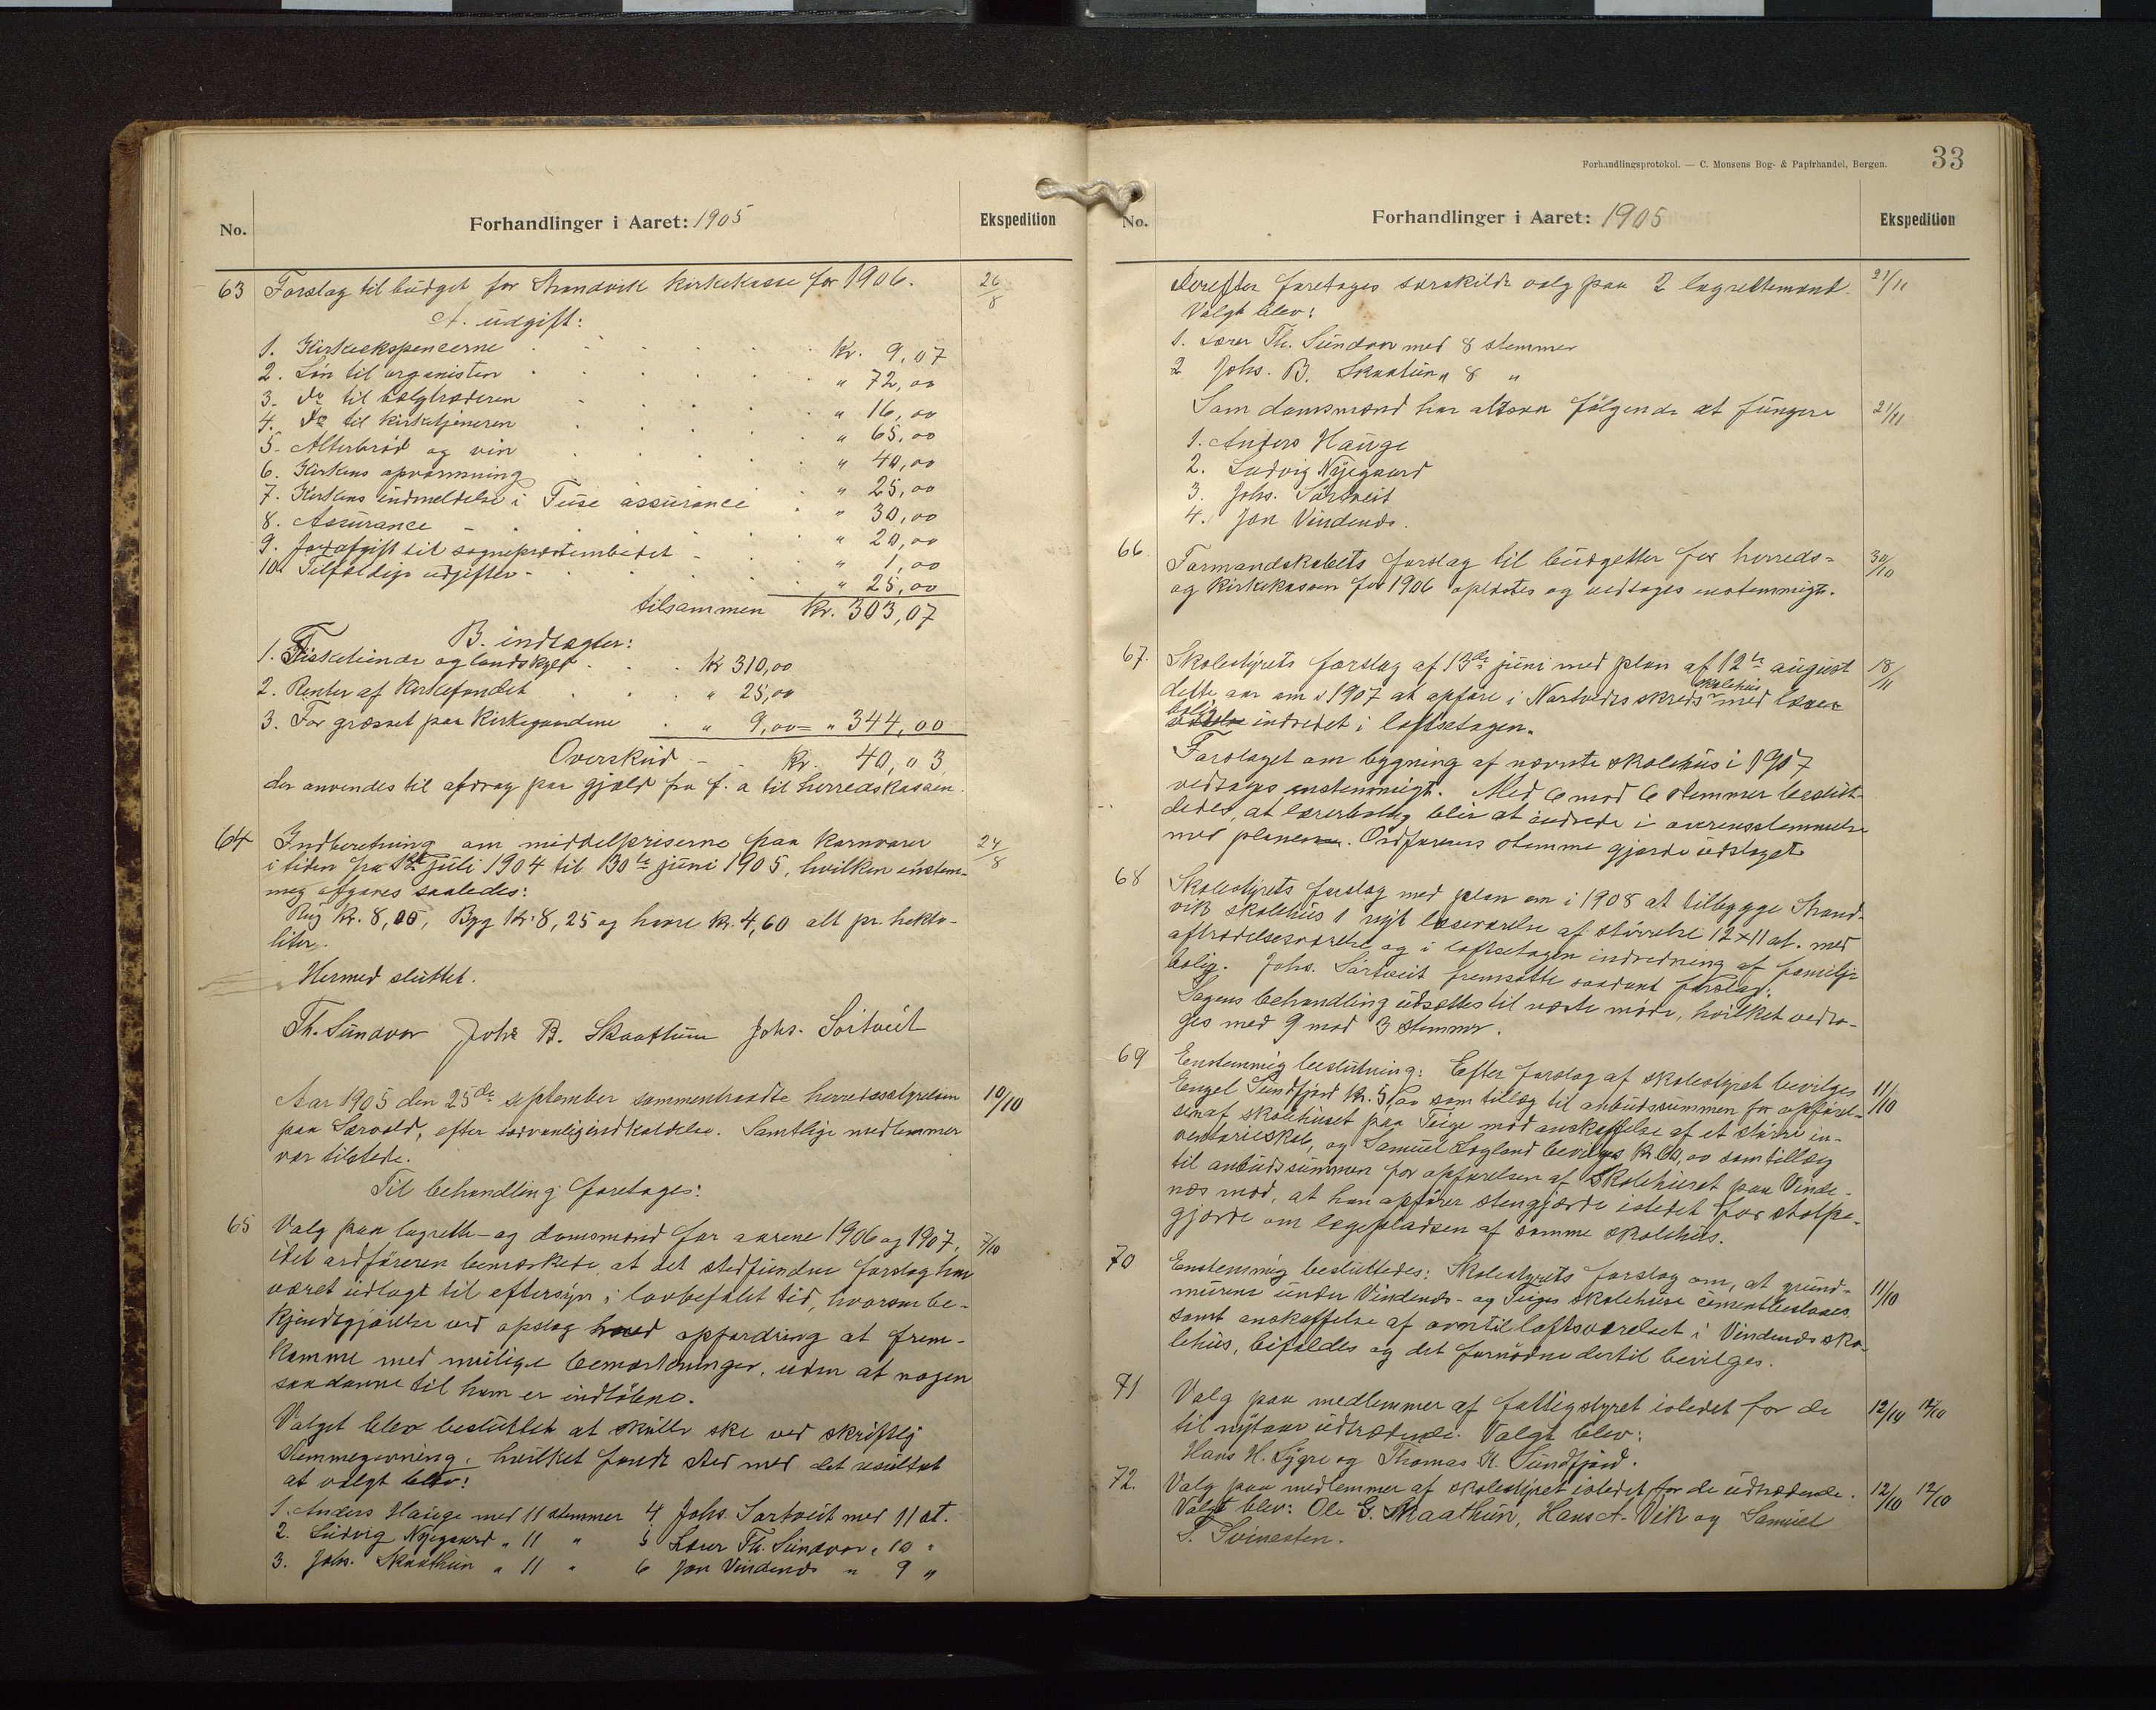 No. Forhandlinger i Aaret: 1905 Ekspedition
63 Forslag til budget for Strandvik kirkekasse for 1906. 26/8
A. udgift:
1. Kirkeekspencerne kr. 9,07
2. Løn til organisten " 72,00
3. Do til bælgtræderen " 16,00
4. Do til kirketjeneren " 65,00
5. Alterbrød og vin " 40,00
6. Kirkens opvarmning " 25,00
7. Kirkens indmeldelse i Tuse assurance " 30,00
8. Assurance " 20,00
9. Jordafgift til sogneprestembedet " 1,00
10. Tilfældige udgifter " 25,00
tilsammen kr. 303,07
B. indtægter:
1. Fisketiende og landskyld kr 310,00
2. Renter af kirkefondet " 25,00
3. For græsset paa kirkegaardene " 9,00 = " 344,00
Overskud kr. 40,03
der anvendes til afdrag paa gjæld fra f. a til herredskassen.
64 Indberetning om middelpriserne paa kornvarer 24/8
i tiden fra 1ste juli 1904 til 30te juni 1905, hvilken enstem-
mig afgaves saaledes:
Rug kr. 8,00, Byg kr. 8,25 og havre kr. 4,60 alt pr. hekto-
liter.
Hermed sluttet.
Th. Sundvor Johs B. Skaathun Johs. Sörtveit
Aar 1905 den 25de september sammentraadte herredsstyrelsen 10/10
paa Særvold, efter sædvanlig indkaldelse. Samtlige medlemmer
var tilstede.
Til behandling foretages:
65 Valg paa lagrette- og domsmænd for aarene 1906 og 1907, 7/10
idet ordføreren bemærkede, at det stedfundne forslag har
været udlagt til eftersyn i lovbefalet tid, hvorom be-
kjendtgjørelse ved opslag med opfordring at frem-
komme med mulige bemærkninger, uden at nogen
saadanne til ham er indløbne.
Valget blev besluttet at skulle ske ved skriftlig
stemmegivning, hvilket fandt sted med det resultat
at valgt blev:
1. Anders Hauge med 11 stemmer 4 Johs. Sørtveit med 11 st.
2. Ludvig Nygaard " 11 " 5 Lærer Th. Sundvor " 10 "
3. Johs. Skaathun " 11 " 6 Jon Vindenes " 9 "
Forhandlingsprotokol. — C. Monsens Bog- & Papirhandel, Bergen. 33
No. Forhandlinger i Aaret: 1905 Ekspedition
Derefter foretages særskildt valg paa 2 lagrettemænd. 21/11
Valgt blev:
1. Lærer Th. Sundvor med 8 stemmer
2 Johs. B. Skaatun " 8 "
Som domsmænd har altsaa følgende at fungere 21/11
1. Anders Hauge
2. Ludvig Nygaard
3. Johs. Sørtveit
4. Jon Vindenes.
66 Formandskabets forslag til budgetter for herreds- 30/10
og kirkekassen for 1906 oplæstes og vedtages enstemmigt.
67. Skolestyrets forslag af 13de juni med plan af 12te august 18/11
dette aar om i 1907 at opføre i Nartveds skreds skolehus med lærer-
bolig indredet i loftsetagen.
Forslaget om bygning af nævnte skolehus i 1907
vedtages enstemmigt. Med 6 mod 6 stemmer beslut-
tedes, at lærerbolig blir at indrede i overensstemmelse
med planen. Ordførerens stemme gjorde udslaget.
68 Skolestyrets forslag med plan om i 1908 at tilbygge Strand-
vik skolehus 1 nyt læseværelse af størrelse 12 x 11 al. med
aftrædelsesværelse og i loftsetagen indredning af familje
bolig. Johs. Sørtveit fremsatte saadant forslag:
Sagens behandling udsættes til næste møde, hvilket vedto-
ges med 9 mod 3 stemmer.
69 Enstemmig beslutning: Efter forslag af skolestyret bevilges 11/10
Engel Sundfjord kr. 5,00 som tillæg til anbudssummen for opførel-
sen af skolehuset paa Teige mod anskaffelse af et større in-
ventarieskab, og Samuel Løgland bevilges kr. 60,00 som tillæg
til anbudssummen for opførelsen af skolehuset paa Vinde-
nes mod, at han opfører stengjærde istedet for stolpe-
gjærde om legepladsen af samme skolehus.
70 Enstemmig besluttedes: Skolestyrets forslag om, at grund- 11/10
murene under Vindenes- og Teiges skolehuse cementbeslaaes,
samt anskaffelse af ovn til loftsværelset i Vindenes sko-
lehus, bifaldes og det fornødne dertil bevilges.
71 Valg paa medlemmer af fattigstyret istedet for de 12/10 12/10
til nytaar udtrædende. Valgt blev:
Hans H. Sygre og Thomas K. Sundfjord.
72. Valg paa medlemmer af skolestyret istedet for de udtrædende. 12/10 12/10
Valgt blev: Ole G. Skaathun, Hans A. Vik og Samuel
T. Svinesten.